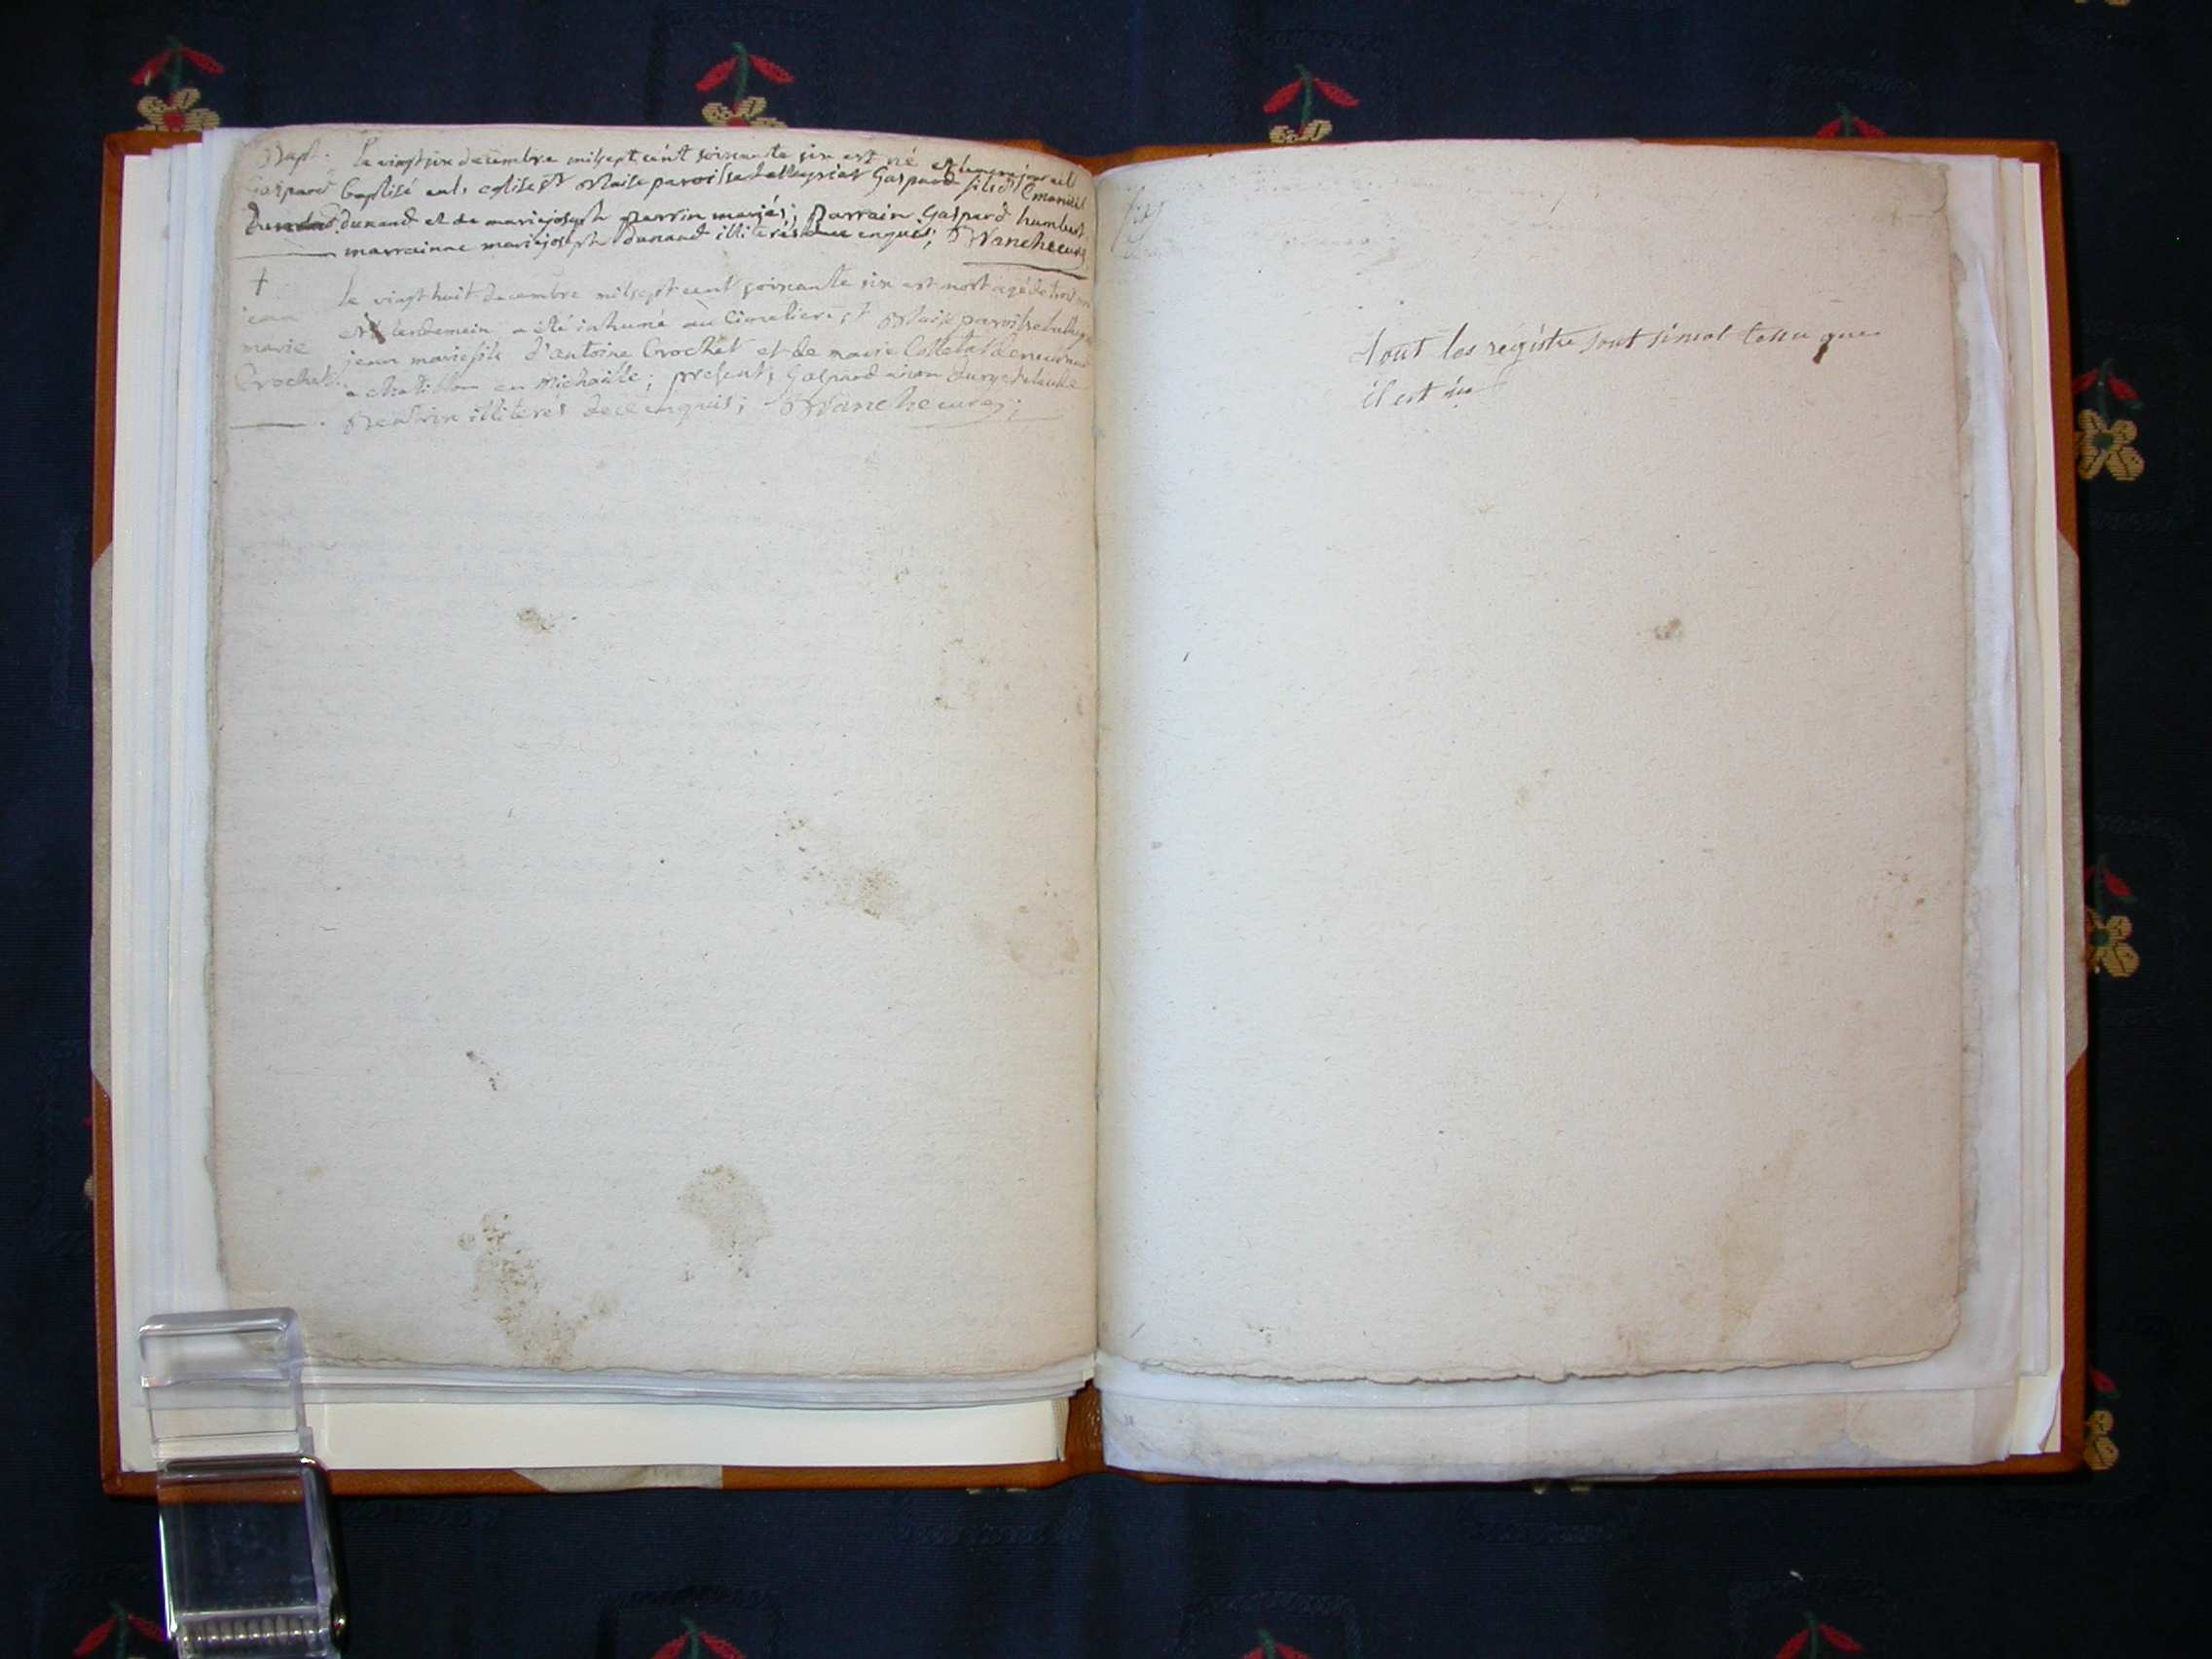 Bapt. Le vingt six decembre mil sept cent soixante six est né et le meme jour a été
Gaspard baptisé en l'eglise st Blaise paroisse d'alleyriat Gaspard fils d'Emanuel
dunand dunand et de marie joseph perrin mariés; Parrain Gaspard humbert
marrainne marie joseph dunand illiterés de ce enquis; Blanc curé
†
le vingt huit decembre mil sept cent soixante six est mort agé de trois
jean et le lendemain a été inhumé au Cimetiere st Blaise paroisse
marie jean marie fils d'antoine Crochet et de marie
Crochet a chatillon en michaille; present, Gaspard
illiterés de ce enquis; Blanc curé;
tout les registre sont si mal tenu que
il est